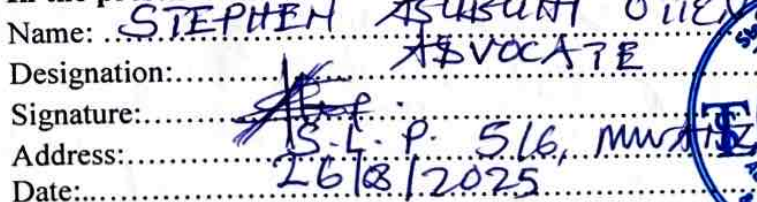 Name: STEPHEN
Designation: ADVOCATE
Signature:
Address: S.L.P. 516, MWANZ
Date: 26/8/2025